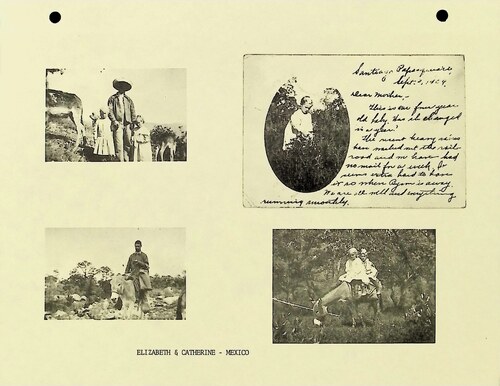 Santiago Papasquiaro,
Sept. 9, 1924.
Dear Mother,-
This is our four year
old baby. Has she changed
in a year?
The recent heavy rains
have washed out the rail-
road and we have had
no mail for a week. It
seems extra hard to have
it so when Byron is away.
We are all well and everything
running smoothly.
ELIZABETH & CATHERINE - MEXICO